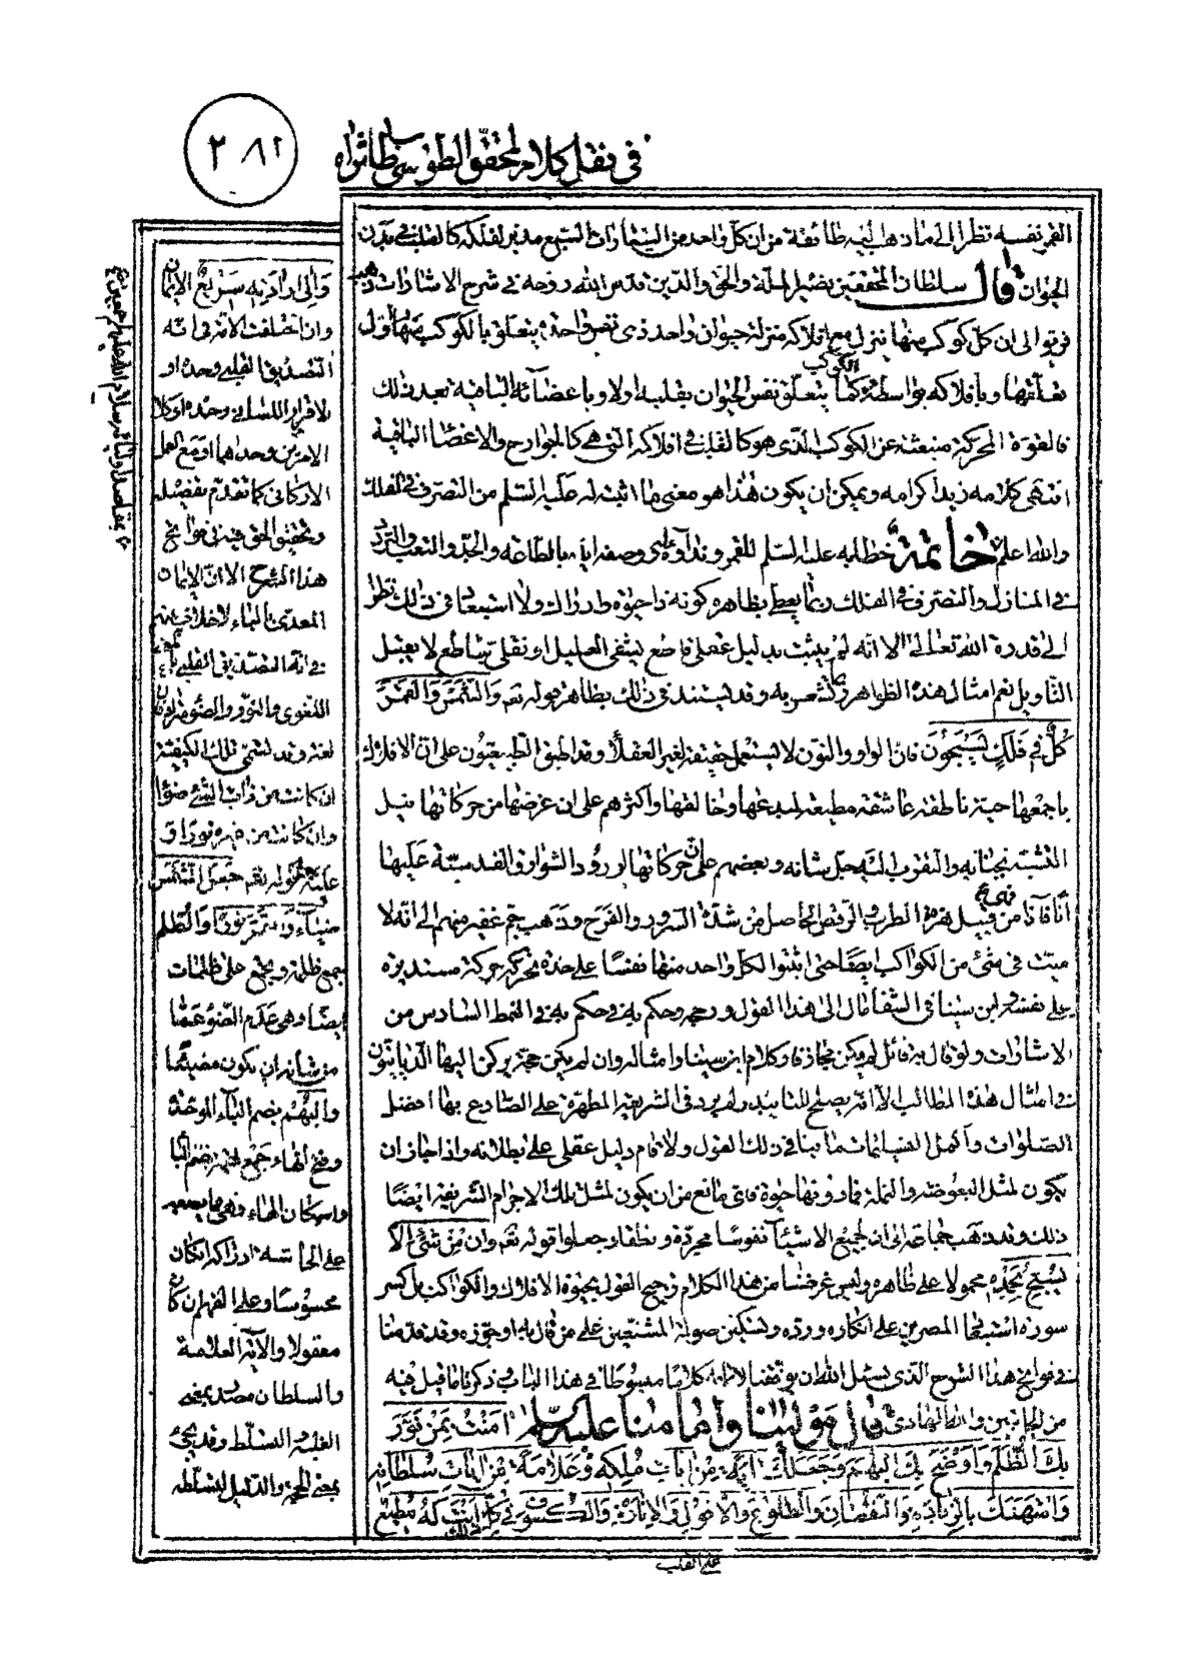 في نقل كلام المحقق الطوسي طاب ثراه
٢٨٢
القمر نفسه نظرا الى ما ذهب اليه طائفة من ان كل واحد من السيارات السبع مدبر لفلكه كالقلب في بدن
الحيوان قال سلطان المحققين نصير الملة والحق والدين قدس الله روحه في شرح الاشارات ذهب
فريق الى ان كل كوكب منها ينزل مع افلاكه منزلة حيوان واحد ذي نفس واحدة يتعلق بالكوكب منها اول
تعلقها وبافلاكه بواسطة الكوكب كما يتعلق نفس الحيوان بقلبه اولا وباعضائه الباقية بعد ذلك
فالقوة المحركة منبعثة عن الكوكب الذي هو كالقلب في افلاكه التي هي كالجوارح والاعضاء الباقية
انتهى كلامه زيد اكرامه ويمكن ان يكون هذا هو معنى ما اثبته له عليه السلم من التصرف في الفلك
والله اعلم خاتمة خطابه عليه السلم للقمر ونداؤه له ووصفه اياه بالطاعة والجد والتعب والتردد
في المنازل والتصرف في الفلك ربما يعطي بظاهره كونه ذا حيوة وادراك ولا استبعاد في ذلك نظرا
الى قدرة الله تعالى الا انه لم يثبت بدليل عقلي قاطع يشفي العليل او نقلي ساطع لا يقبل
التأويل نعم امثال هذه الظواهر ربما تشعر به وقد يستند في ذلك بظاهر قوله تعم والشمس والقمر
كل في فلك يسبحون فان الواو والنون لا يستعمل حقيقة لغير العقلاء وقد اطبق الطبيعيون على ان الافلاك
باجمعها حية ناطقة عاشقة مطيعة لمبدعها وخالقها واكثرهم على ان غرضها من حركاتها نيل
التشبه بجنابه والتقرب اليه جل شانه وبعضهم على ان حركاتها لورود الشوارق القدسية عليها
آنا فآنا فهي من قبيل هزة الطرب والرقص الحاصل من شدة السرور والفرح وذهب جم غفير منهم الى انه لا
ميت في شئ من الكواكب ايضا حتى اثبتوا لكل واحد منها نفسا على حدة تحركه حركة مستديرة
على نفسه وابن سينا في الشفا مال الى هذا القول ورجحه وحكم به في النمط السادس من
الاشارات ولو قال به قائل لم يكن مجازفا وكلام ابن سينا وامثاله وان لم يكن حجة يركن اليها الديانيون
في امثال هذه المطالب الا انه يصلح للتاييد ولم يرد في الشريعة المطهرة على الصادع بها افضل
الصلوات واكمل التسليمات ما ينافي ذلك القول ولا قام دليل عقلي على بطلانه واذا جاز ان
يكون لمثل البعوضة والنملة فما دونها حيوة فاي مانع من ان يكون لمثل تلك الاجرام الشريفة ايضا
ذلك وقد ذهب جماعة الى ان لجميع الاشياء نفوسا مجردة ونطقا وجعلوا قوله تعم وان من شئ الا
يسبح بحمده محمولا على ظاهره وليس غرضنا من هذا الكلام ترجيح القول بحيوة الافلاك والكواكب بل كسر
سورة استبعاد المصرين على انكاره ورده وتسكين صولة المشنعين على من قال به او جوزه وقد قدمنا
في فواتح هذا الشرح الذي نسئل الله ان يوفقنا لاتمامه كلاما مبسوطا في هذا الباب وذكرنا ما قيل فيه
من الجانبين والله الهادي قال مولينا وامامنا عليه السلم امنت بمن نور
بك الظلم واوضح بك البهم وجعلك اية من ايات ملكه وعلامة من ايات سلطانه
وامتهنك بالزيادة والنقصان والطلوع والافول والانارة والكسوف في كل ذلك انت له مطيع
والى ارادته سريع الايمان
وان اختلفت الامة في انه
التصديق القلبي وحده او
الاقرار اللساني وحده او كلا
الامرين وحدهما او مع العمل
الاركاني كما تقدم تفصيله
وتحقيق الحق فيه في فواتح
هذا الشرح الا ان الايمان
المعدى بالباء لا خلاف بينهم
في انه التصديق القلبي
اللغوي والنور والضوء مترادفان
لغة وقد تسمى تلك الكيفية
ان كانت من ذات الشئ ضوءا
وان كانت من غيره نورا و
عليه قوله تعم جعل الشمس
ضياء والقمر نورا والظلم
جمع ظلمة ويجمع على ظلمات
ايضا وهي عدم الضوء عما
من شانه ان يكون مضيئا
والبهم بضم الباء الموحدة
وفتح الهاء جمع بهمة بضم الباء
واسكان الهاء وهي ما يصعب
على الحاسة ادراكه ان كان
محسوسا وعلى الفهم ان كان
معقولا والاية العلامة
والسلطان مصدر بمعنى
الغلبة والتسلط وقد يجئ
بمعنى الحجة والدليل لتسلطه
على القلب